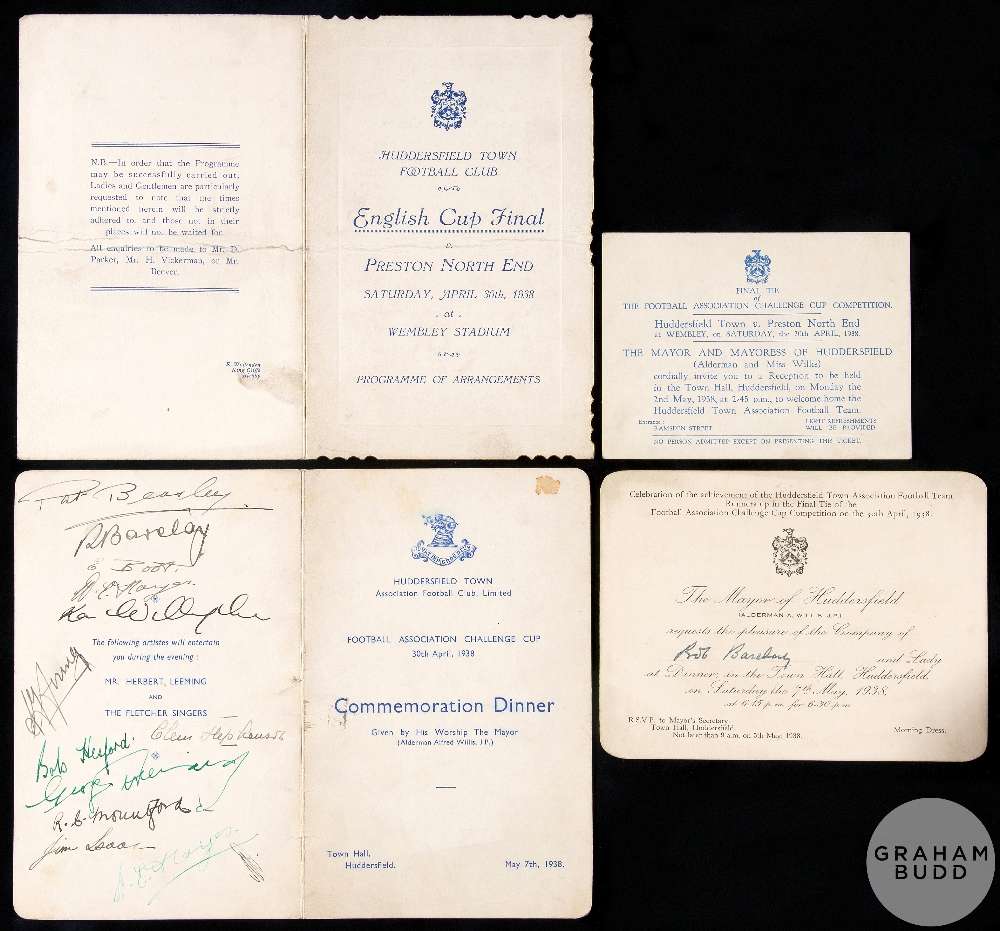 N.B.—In order that the Programme
may be successfully carried out,
Ladies and Gentlemen are particularly
requested to note that the times
mentioned herein will be strictly
adhered to, and those not in their
places will not be waited for.
All enquiries to be made to Mr. D.
Packer, Mr. H. Vickerman, or Mr.
Beever.
HUDDERSFIELD TOWN
FOOTBALL CLUB
English Cup Final
v.
PRESTON NORTH END
SATURDAY, APRIL 30th, 1938
at
WEMBLEY STADIUM
PROGRAMME OF ARRANGEMENTS
FINAL TIE
of
THE FOOTBALL ASSOCIATION CHALLENGE CUP COMPETITION.
Huddersfield Town v. Preston North End
at WEMBLEY, on SATURDAY, the 30th APRIL, 1938.
THE MAYOR AND MAYORESS OF HUDDERSFIELD
(Alderman and Miss Willis)
cordially invite you to a Reception to be held
in the Town Hall, Huddersfield, on Monday the
2nd May, 1938, at 2-45 p.m., to welcome home the
Huddersfield Town Association Football Team.
Entrance:
RAMSDEN STREET
LIGHT REFRESHMENTS
WILL BE PROVIDED
NO PERSON ADMITTED EXCEPT ON PRESENTING THIS TICKET.
Pat Beasley
R Barclay
E Boot.
Ken Willingham
The following artistes will entertain
you during the evening :
MR. HERBERT, LEEMING
AND
THE FLETCHER SINGERS
Clem Stephenson
Bob Hesford.
R. C. Mountford
Jim Isaac
HUDDERSFIELD TOWN
Association Football Club, Limited
FOOTBALL ASSOCIATION CHALLENGE CUP
30th April, 1938
Commemoration Dinner
Given by His Worship The Mayor
(Alderman Alfred Willis, J.P.)
Town Hall,
Huddersfield.
May 7th, 1938.
Celebration of the achievement of the Huddersfield Town Association Football Team
Runners-up in the Final Tie of the
Football Association Challenge Cup Competition on the 30th April, 1938.
The Mayor of Huddersfield
(ALDERMAN A. WILLIS J.P.)
requests the pleasure of the Company of
Bob Barclay and Lady
at Dinner, in the Town Hall, Huddersfield,
on Saturday the 7th May, 1938,
at 6-15 p.m. for 6-30 p.m.
R.S.V.P. to Mayor's Secretary
Town Hall, Huddersfield
Not later than 9 a.m. on 5th May, 1938.
Morning Dress.
GRAHAM
BUDD